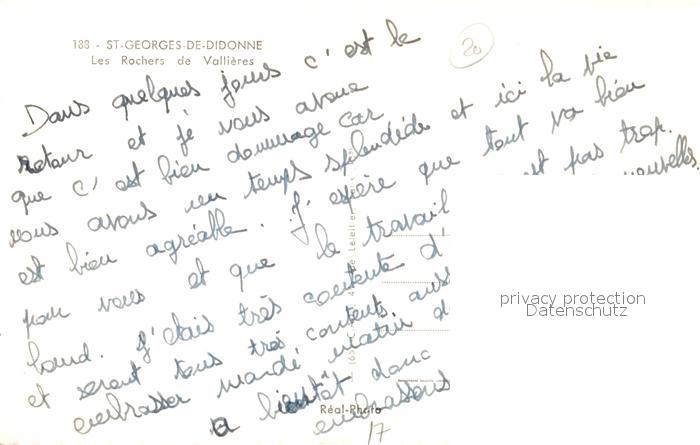 188 - ST-GEORGES-DE-DIDONNE
Les Rochers de Vallières
20
Dans quelques jours c'est le
retour et je vous avoue
que c'est bien dommage car
nous avons un temps splendide et ici la vie
est bien agréable. J'espère que tout va bien
pour vous et que le travail est pas trop
lourd. J'étais très contente d nouvelles
et seront tous très contents auss
embrasser mardi matin d
a bientôt donc
embrassons
Réal-Photo
17
privacy protection
Datenschutz